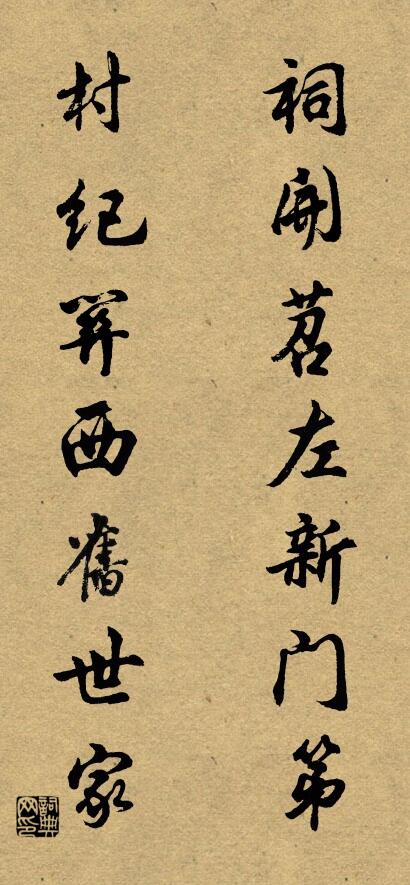 祠開苕左新門第
村紀笄西舊世家
詞典网印